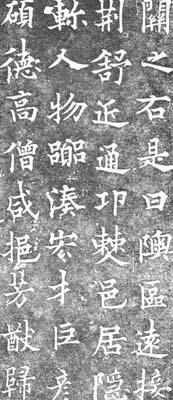 關之右是曰隩區遠接
荆舒近通邛僰邑居隱
軫人物湊宏才巨彥
碩德高僧咸挹芳猷歸